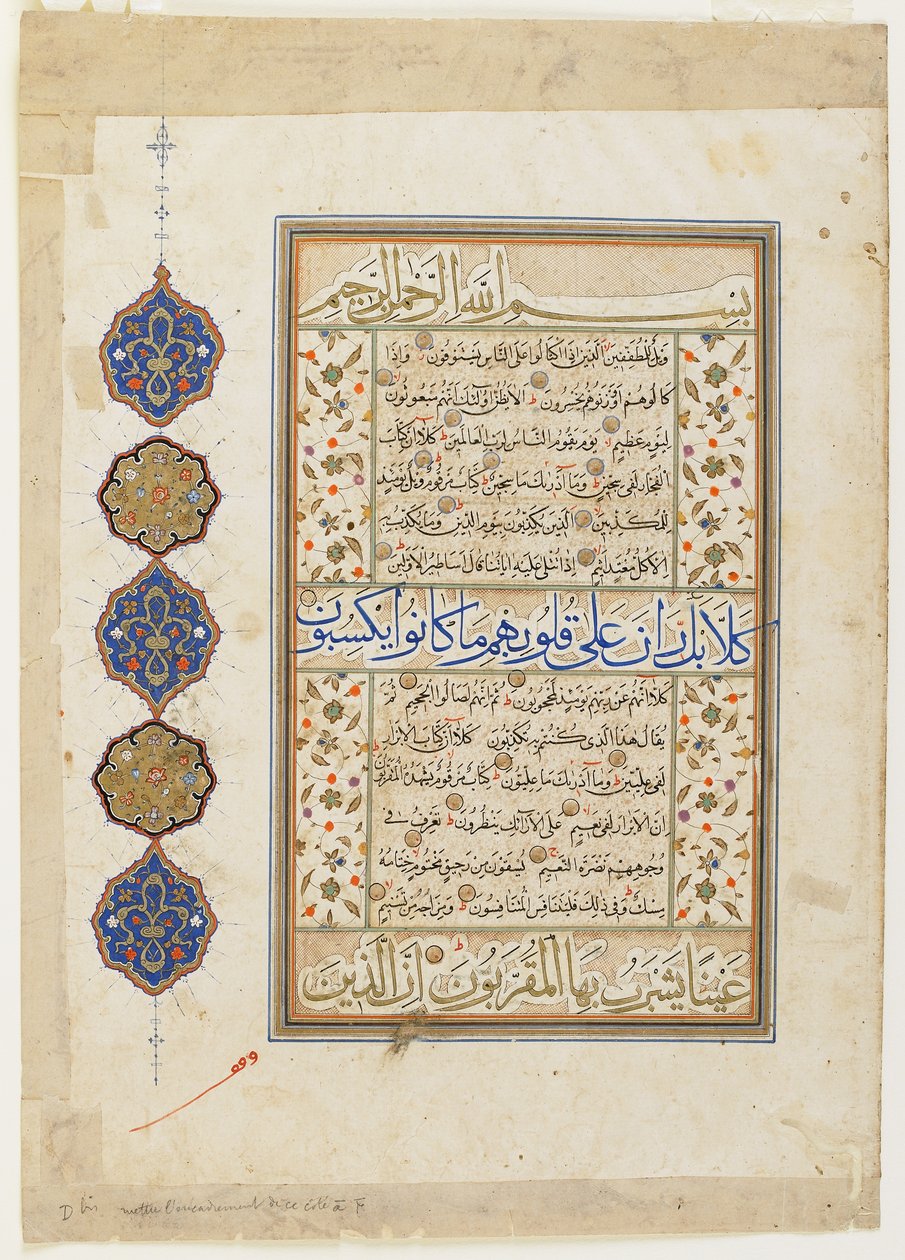 بِسْمِ اللَّهِ الرَّحْمَنِ الرَّحِيمِ
وَيْلٌ لِلْمُطَفِّفِينَ الَّذِينَ اِذَا اكْتَالُوا عَلَى النَّاسِ يَسْتَوْفُونَ وَاِذَا
كَالُوهُمْ اَوْوَزَنُوهُمْ يُخْسِرُونَ اَلَا يَظُنُّ اُولٰئِكَ اَنَّهُمْ مَبْعُوثُونَ
لِيَوْمٍ عَظِيمٍ يَوْمَ يَقُومُ النَّاسُ لِرَبِّ الْعَالَمِينَ كَلَّا اِنَّ كِتَابَ
الْفُجَّارِ لَفِى سِجِّينٍ وَمَا اَدْرٰيكَ مَا سِجِّينٌ كِتَابٌ مَرْقُومٌ وَيْلٌ يَوْمَئِذٍ
لِلْمُكَذِّبِينَ الَّذِينَ يُكَذِّبُونَ بِيَوْمِ الدِّينِ وَمَا يُكَذِّبُ بِهِ
اِلَّا كُلُّ مُعْتَدٍ اَثِيمٍ اِذَا تُتْلَى عَلَيْهِ اٰيَاتُنَا قَالَ اَسَاطِيرُ الْاَوَّلِينَ
كَلَّا بَلْ رَانَ عَلَى قُلُوبِهِمْ مَا كَانُوا يَكْسِبُونَ
كَلَّا اِنَّهُمْ عَنْ رَبِّهِمْ يَوْمَئِذٍ لَمَحْجُوبُونَ ثُمَّ اِنَّهُمْ لَصَالُوا الْجَحِيمِ ثُمَّ
يُقَالُ هٰذَا الَّذِى كُنْتُمْ بِهِ تُكَذِّبُونَ كَلَّا اِنَّ كِتَابَ الْاَبْرَارِ
لَفِى عِلِّيِّينَ وَمَا اَدْرٰيكَ مَا عِلِّيُّونَ كِتَابٌ مَرْقُومٌ يَشْهَدُهُ الْمُقَرَّبُونَ
اِنَّ الْاَبْرَارَ لَفِى نَعِيمٍ عَلَى الْاَرَائِكِ يَنْظُرُونَ تَعْرِفُ فِى
وُجُوهِهِمْ نَضْرَةَ النَّعِيمِ يُسْقَوْنَ مِنْ رَحِيقٍ مَخْتُومٍ خِتَامُهُ
مِسْكٌ وَفِى ذٰلِكَ فَلْيَتَنَافَسِ الْمُتَنَافِسُونَ وَمِزَاجُهُ مِنْ تَسْنِيمٍ
عَيْنًا يَشْرَبُ بِهَا الْمُقَرَّبُونَ اِنَّ الَّذِينَ
وقف
D bis mettre l'encadrement de ce côté à F